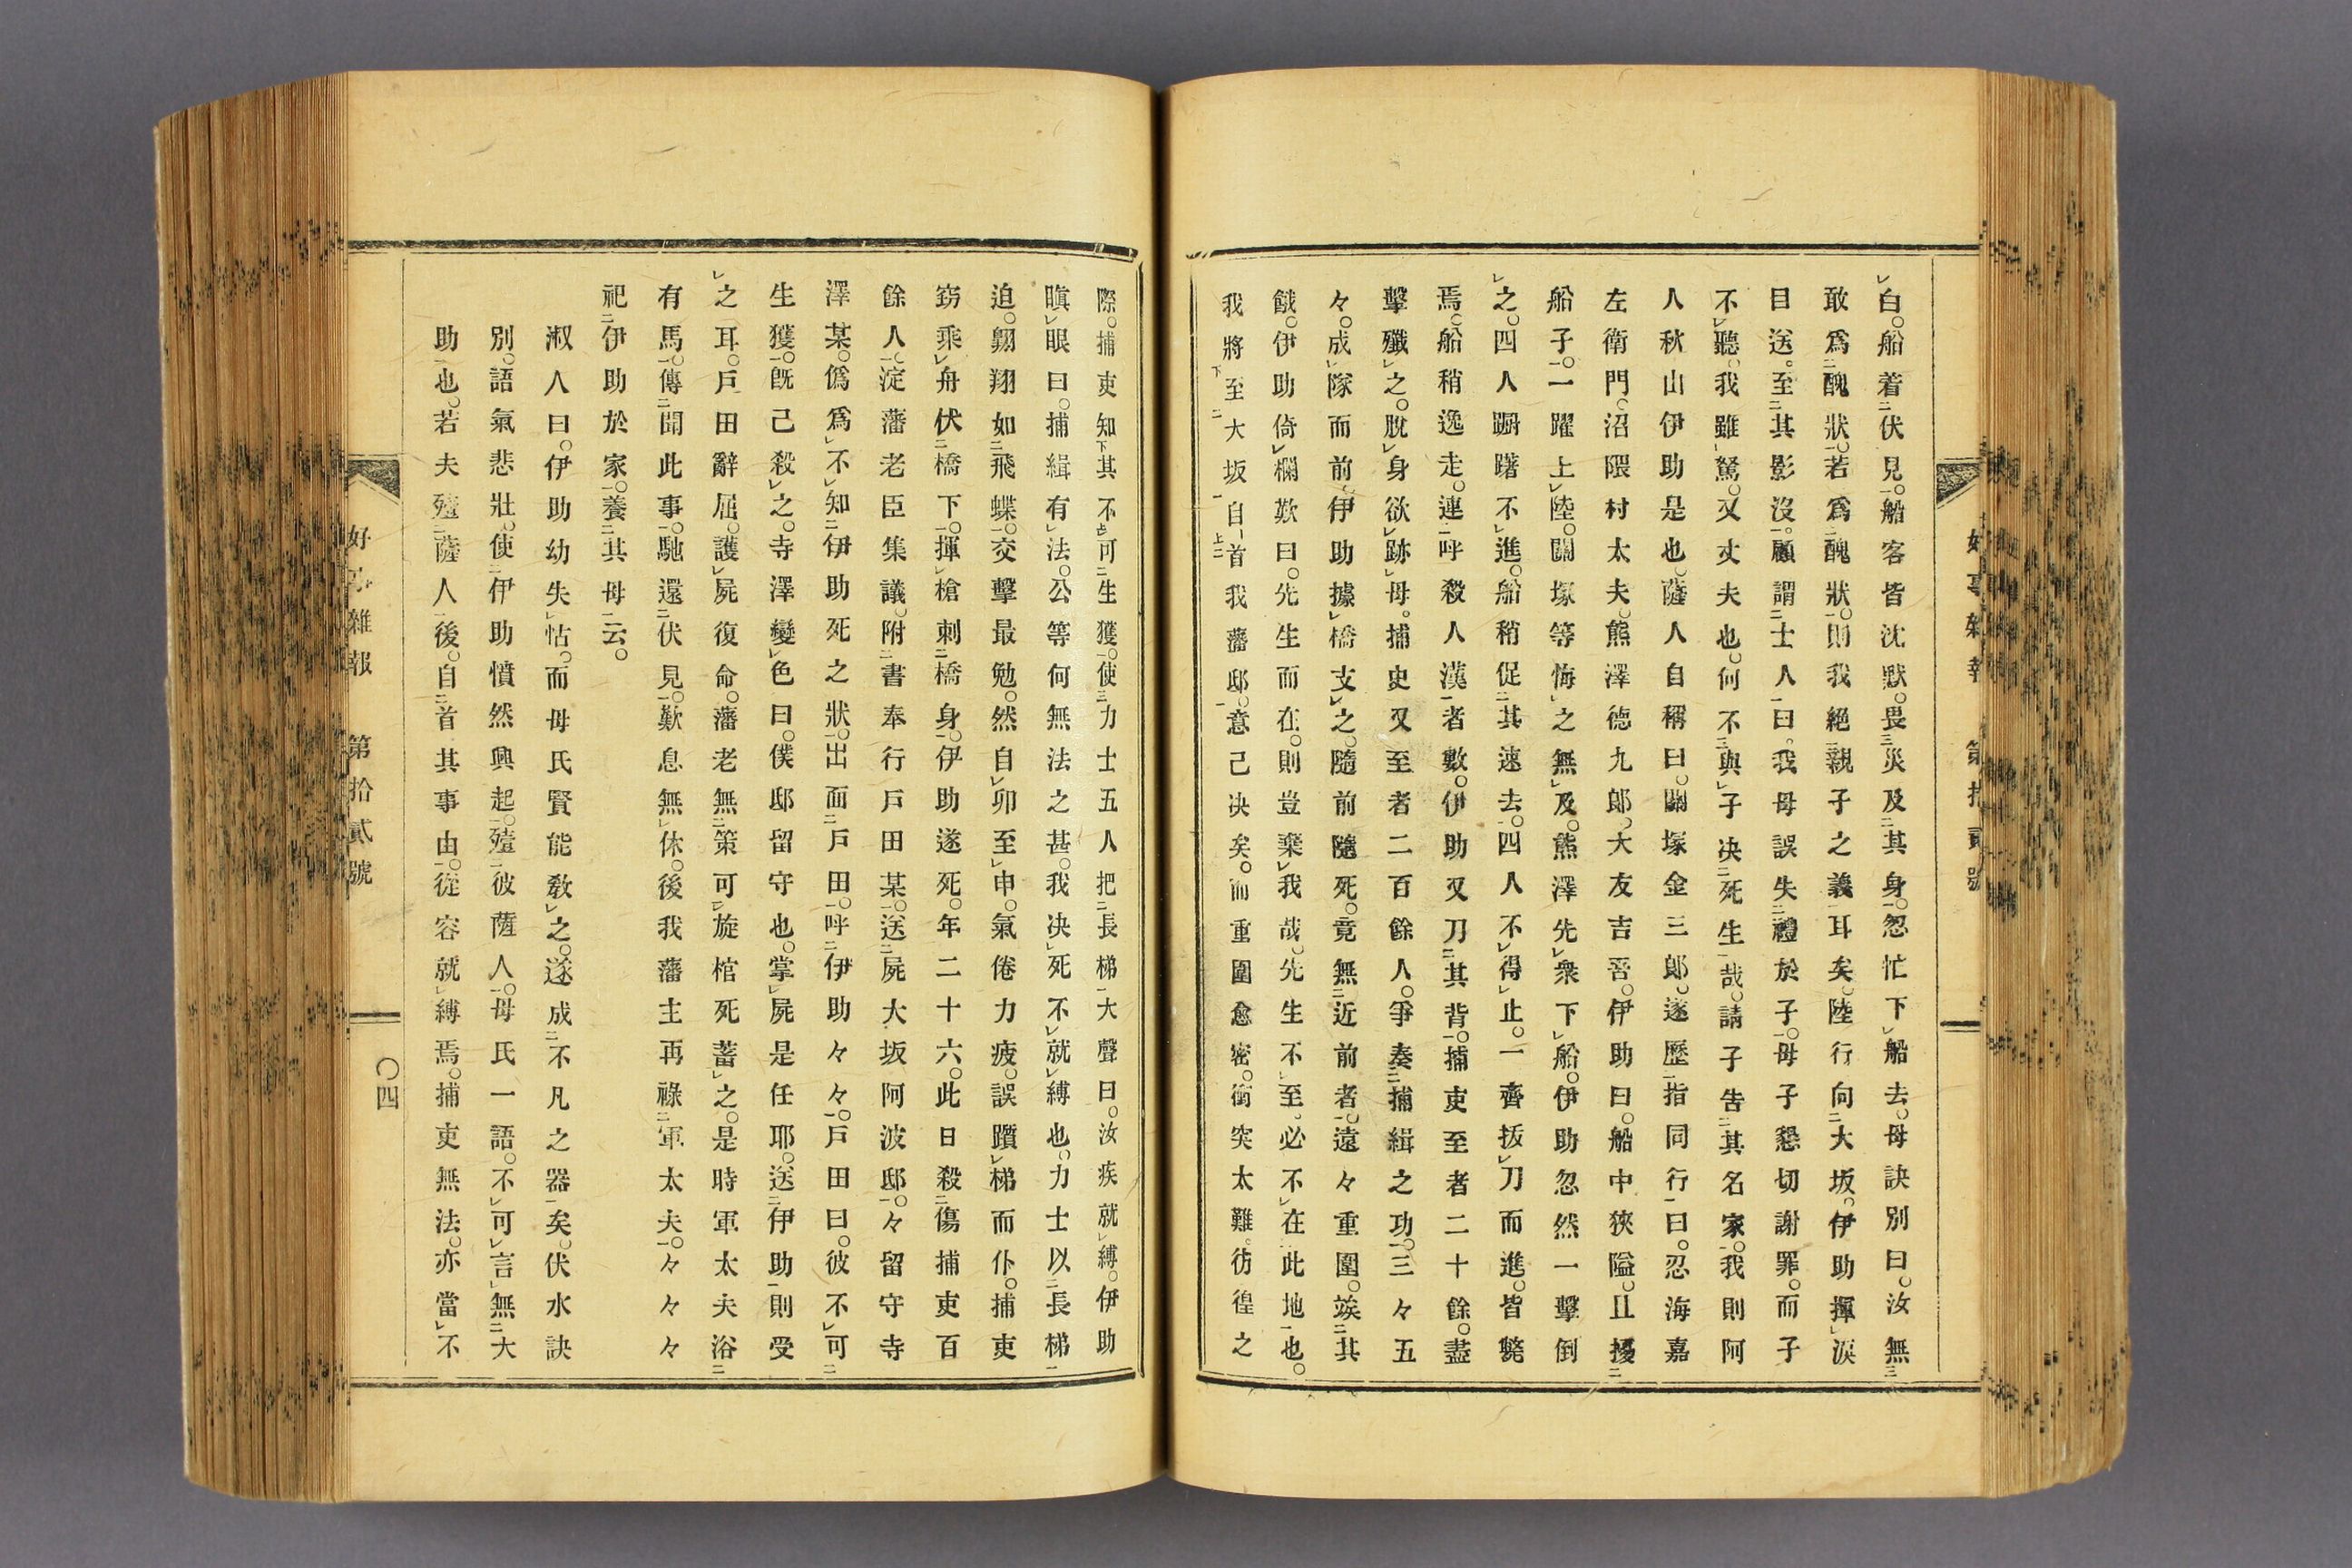 白。船着伏見。船客皆沈默。畏災及其身。忽忙下船去。母訣別曰。汝無
敢爲醜狀。若爲醜狀。則我絕親子之義耳矣。陸行向大坂。伊助揮淚
目送。至其影沒。顧謂士人曰。我母誤失禮於子。母子懇切謝罪。而子
不聽。我雖駑。又丈夫也。何不與子決死生哉。請子告其名家。我則阿
人秋山伊助是也。薩人自稱曰。關塚金三郎。遂歷指同行曰。忍海嘉
左衛門。沼隈村太夫。熊澤德九郎。大友吉吾。伊助曰。船中狹隘。且擾
船子。一躍上陸。關塚等悔之無及。熊澤先衆下船。伊助忽然一擊倒
之。四人躕躇不進。船稍促其速去。四人不得止。一齊拔刀而進。皆斃
焉。船稍逸走。連呼殺人漢者數。伊助又刀其背。捕吏至者二十餘。盡
擊殲之。脫身欲跡母。捕吏又至者二百餘人。爭奏捕緝之功。三々五
々。成隊而前。伊助據橋支之。隨前隨死。竟無近前者。遠々重圍。竢其
餓。伊助倚欄歎曰。先生而在。則豈棄我哉。先生不至。必不在此地也。
我將至大坂自首我藩邸。意己決矣。而重圍愈密。衝突太難。彷徨之
際。捕吏知其不可生獲。使力士五人把長梯大聲曰。汝疾就縛。伊助
瞋眼曰。捕緝有法。公等何無法之甚。我決死不就縛也。力士以長梯
迫。翺翔如飛蝶。交擊最勉。然自卯至申。氣倦力疲。誤躓梯而仆。捕吏
窃乘舟伏橋下。揮槍刺橋身。伊助遂死。年二十六。此日殺傷捕吏百
餘人。淀藩老臣集議。附書奉行戶田某。送屍大坂阿波邸。々留守寺
澤某。僞爲不知伊助死之狀。出面戶田。呼伊助々々。戶田曰。彼不可
生獲。旣己殺之。寺澤變色曰。僕邸留守也。掌屍是任耶。送伊助則受
之耳。戶田辭屈。護屍復命。藩老無策可旋。棺死蓄之。是時軍太夫浴
有馬。傳聞此事。馳還伏見。歎息無休。後我藩主再祿軍太夫。々々々
祀伊助於家。養其母云。
淑人曰。伊助幼失怙。而母氏賢能敎之。遂成不凡之器矣。伏水訣
別。語氣悲壯。使伊助憤然興起。殪彼薩人。母氏一語。不可言無大
助也。若夫殪薩人後。自首其事由。從容就縛焉。捕吏無法。亦當不
好事雜報　第拾貳號
〇四